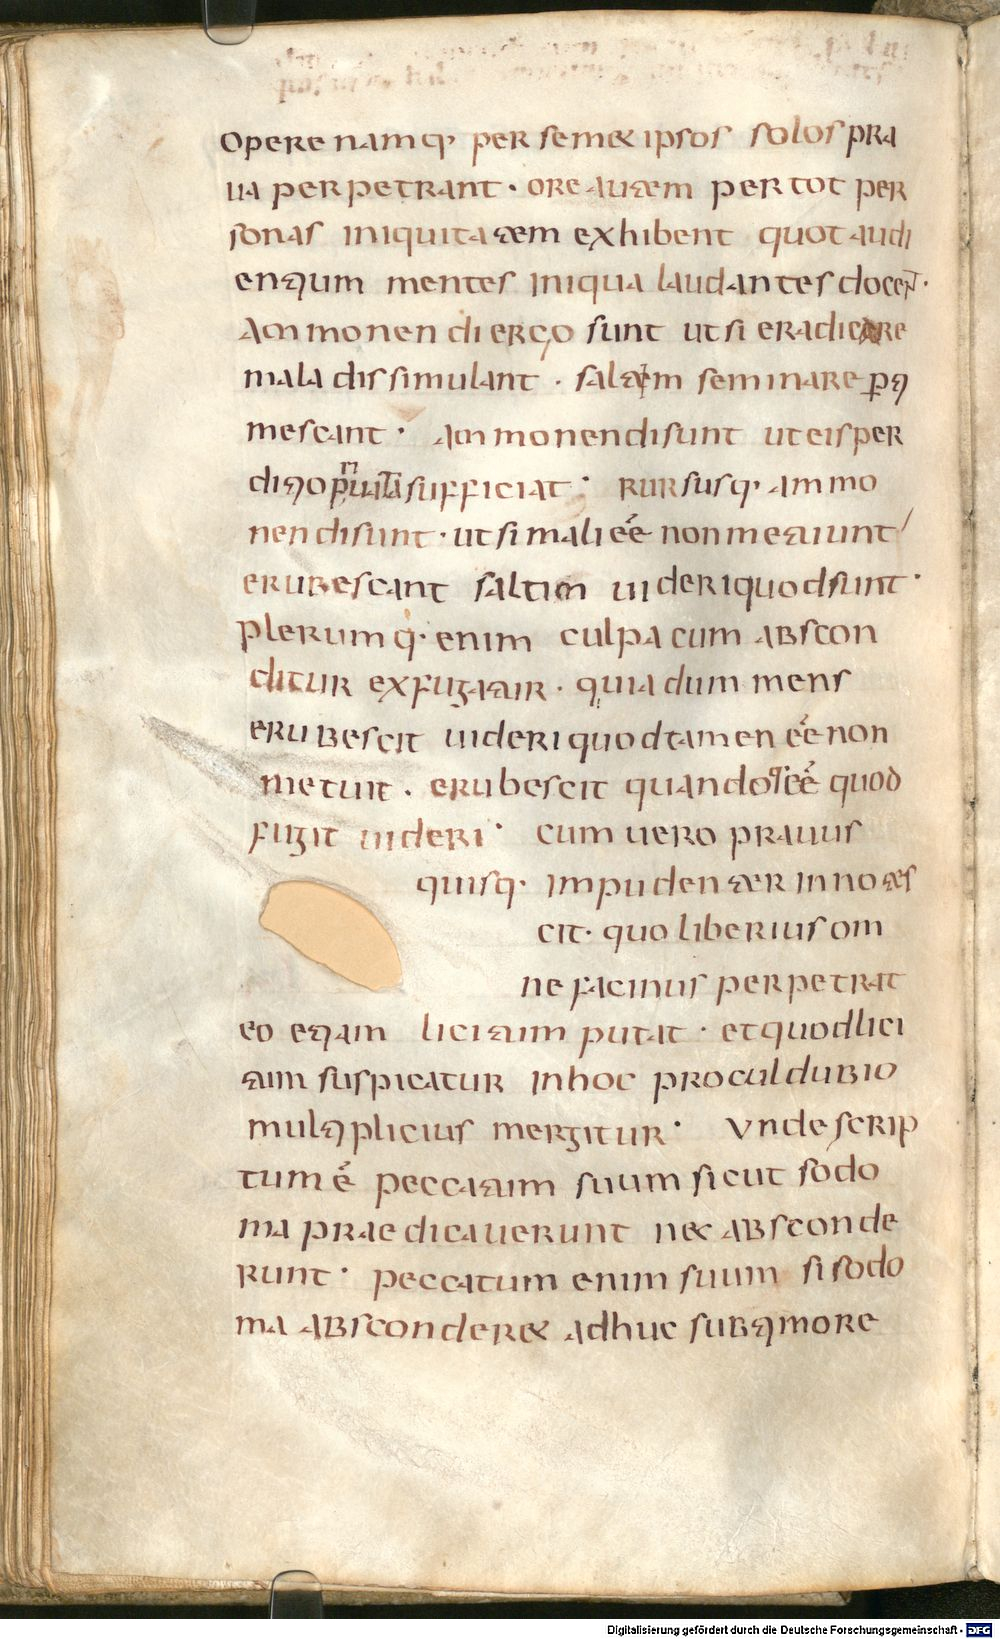 opere namq· per sem& ipsos solos pra
ua perpetrant · ore autem per tot per
sonas iniquitatem exhibent quot audi
entium mentes iniqua laudantes docen̄t·
Ammonendi ergo sunt ut si eradicare
mala dissimulant · saltem seminare p̱ti
mescant · Ammonendi sunt ut eis per
ditio sufficiat · Rursusq· ammo
nendi sunt · ut si mali ee̅ non metuunt
erubescant saltim uideri quod sunt ·
plerumq· enim culpa cum abscon
ditur exfugatur · quia dum mens
erubescit uideri quod tamen ee̅ non
metuit · erubescit quandoq· ee̅ quod
fugit uideri · cum uero prauus
quisq· impudenter innotes
cit · quo liberius om
ne facinus perpetrat
eo etiam licitum putat · et quod lici
tum suspicatur in hoc procul dubio
multiplicius mergitur · Vnde scrip
tum e̅ peccatum suum sicut sodo
ma praedicauerunt nec absconde
runt · peccatum enim suum si sodo
ma absconder& adhuc sub timore
Digitalisierung gefördert durch die Deutsche Forschungsgemeinschaft - DFG